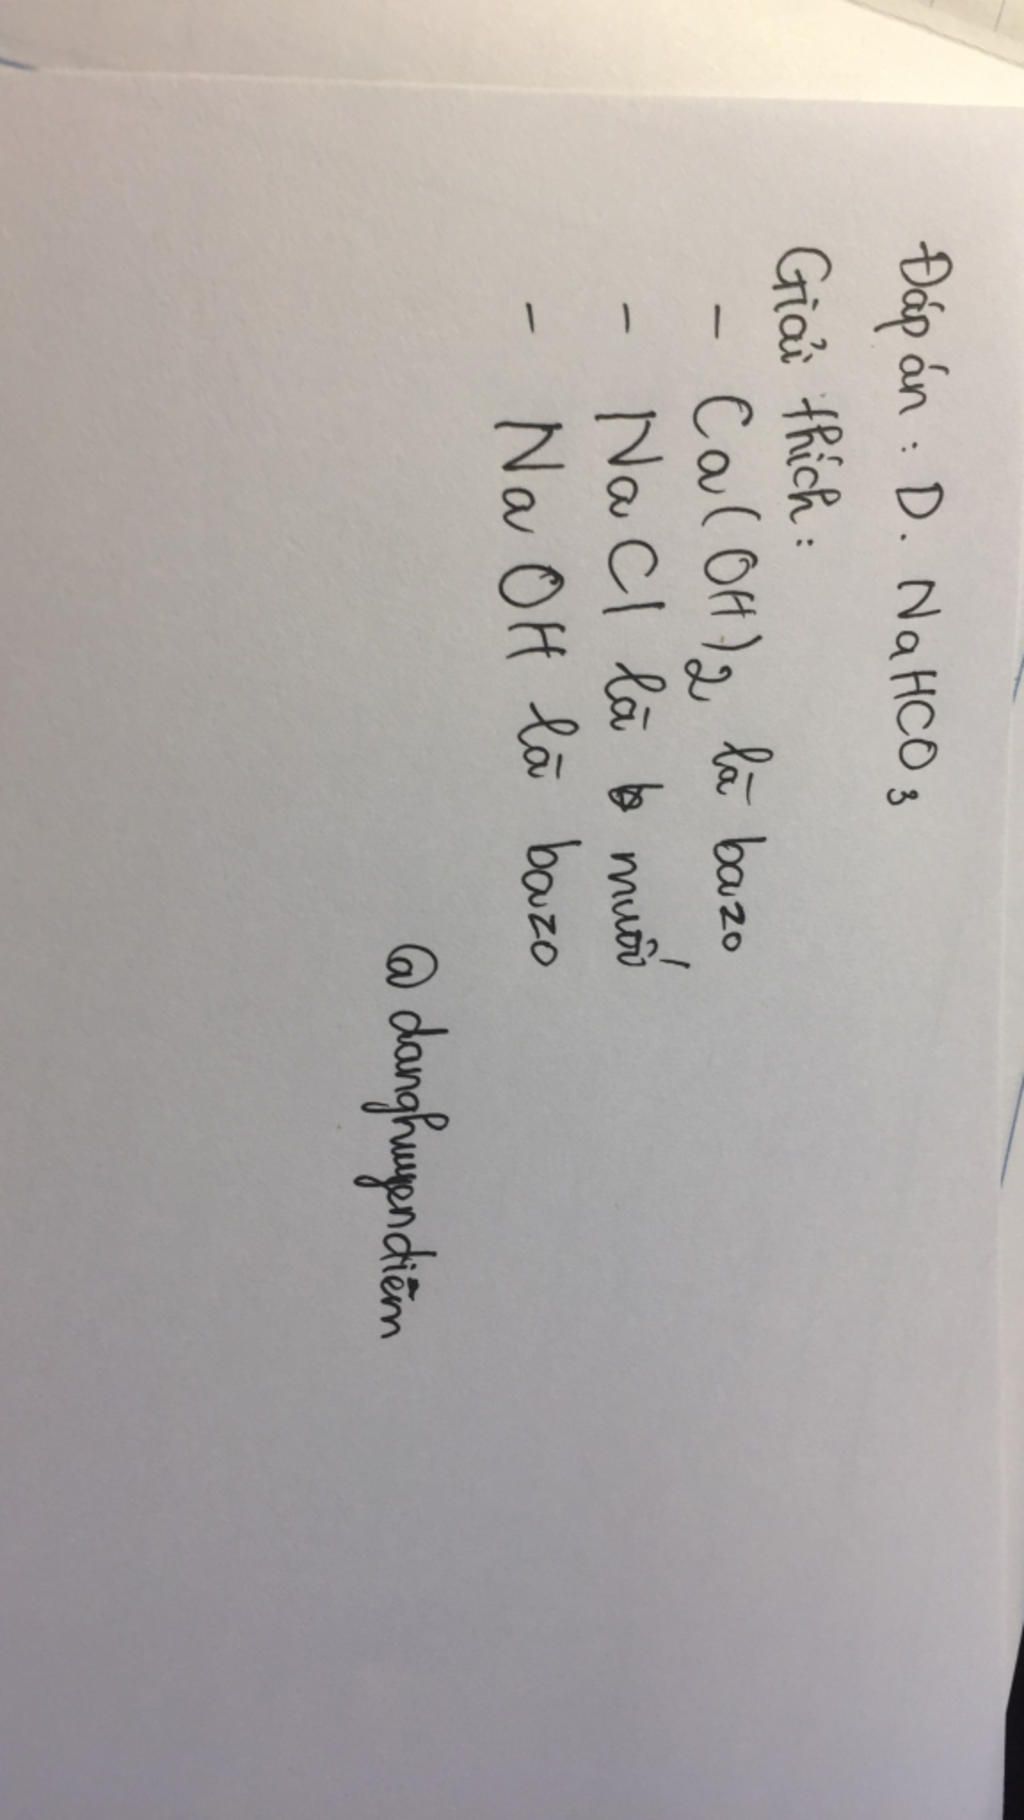 Đáp án : D. NaHCO₃
Giải thích :
- Ca(OH)₂ là bazo
- NaCl là muối
- NaOH là bazo
@ danghuyendiễm